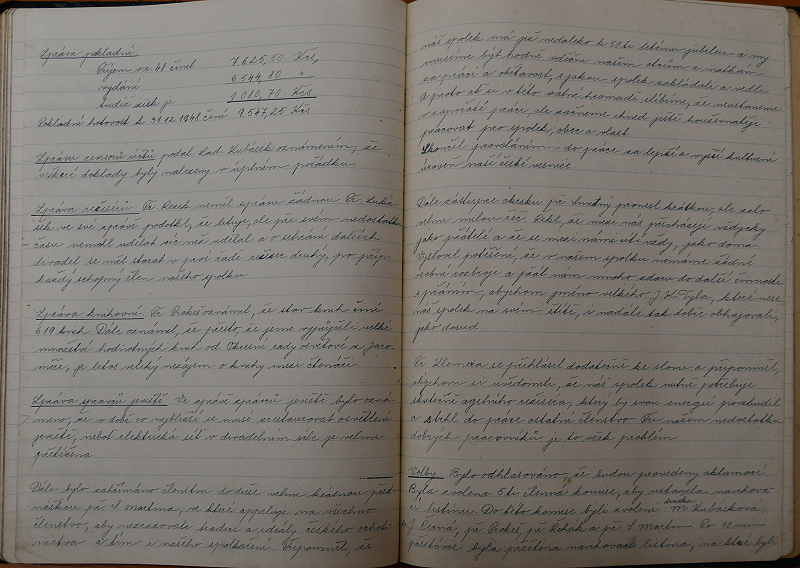 Zpráva pokladní.
Příjem za r. 48 činil 7.625,50 Kčs,
vydání 6.544,80 "
hrubý zisk je 1.080,70 Kčs
Pokladní hotovost k 31.12.1948 činí 9.547,25 Kčs
Zprávu revisorů účtů podal Lad. Lubásek oznámením, že
veškeré doklady byly nalezeny v úplném pořádku.
Zpráva režisérů: Br. Resek neměl zprávu žádnou. Br. Lubá-
sek ve své zprávě podotkl, že lituje, ale při svém nedostatku
času nemohl udělat víc než udělal a o sehrání dalších
divadel se měl starat v prvé řadě režisér druhý, po příp.
každý schopný člen našeho spolku.
Zpráva knihovní: Br. Prokeš oznámil, že stav knih činí
619 knih. Dále oznámil, že přesto, že jsme vypůjčili velké
množství hodnotných knih od Okresní rady osvětové v Jaro-
měři, je letos veliký nezájem o knihy mezi čtenáři.
Zpráva správců jeviště: Ve zprávě správců jeviště bylo ozná-
meno, že v době co nejbližší se musí zrestaurovat osvětlení
jeviště, neboť elektrická síť v divadelním sále je velmi
přetížena.
Dále bylo zatlumočeno členstvu do duše velmi krátkou před-
náškou př. S. Martina, ve které appeluje na všechno
členstvo, aby nezrazovalo tradici a ideály českého ochot-
nictva a tím i našeho spolkaření. Připomněl, že
náš spolek má již nedaleko k 50ti letému jubileu a my
musíme být hodně vděčni našim otcům a matkám
za práci a obětavost, s jakou spolek zakládali a vedli.
A proto ať si v této valné hromadě slíbíme, že neustaneme
v započaté práci, ale začneme ihned ještě houževnatěji
pracovat pro spolek, obec a vlast.
Skončil provoláním - do práce za lepší a vyšší kulturní
úroveň naší české vesnice.
Dále zástupce okrsku př. Smutný pronesl krátkou, ale zato
velmi milou řeč. Řekl, že mezi nás přicházejí vždycky
jako přátelé a že se mezi námi cítí vždy, jako doma.
Vyslovil potěšení, že v našem spolku nemáme žádné
osobní rozbroje a přál nám mnoho zdaru do další činnosti
s přáním, abychom jméno velkého J. K. Tyla, které nese
náš spolek na svém štítě, i nadále tak dobře obhajovali,
jako dosud.
Br. Klemera se přihlásil dodatečně ke slovu a připomněl,
abychom si uvědomili, že náš spolek nutně potřebuje
skutečně agilního režiséra, který by svou energií povzbudil
a strhl do práce ostatní členstvo. Při našem nedostatku
dobrých pracovníků je to však problém.
Volby: Bylo odhlasováno, že budou provedeny aklamací.
Byla zvolena 5ti členná komise, aby sestavila navrhova-
cí listinu. Do této komise byli zvoleni: družka M. Lubásková,
J. Černá, př. Prokeš, př. Řehák a př. S. Martin. Po 10 min.
přestávce byla přečtena navrhovací listina, na které byli